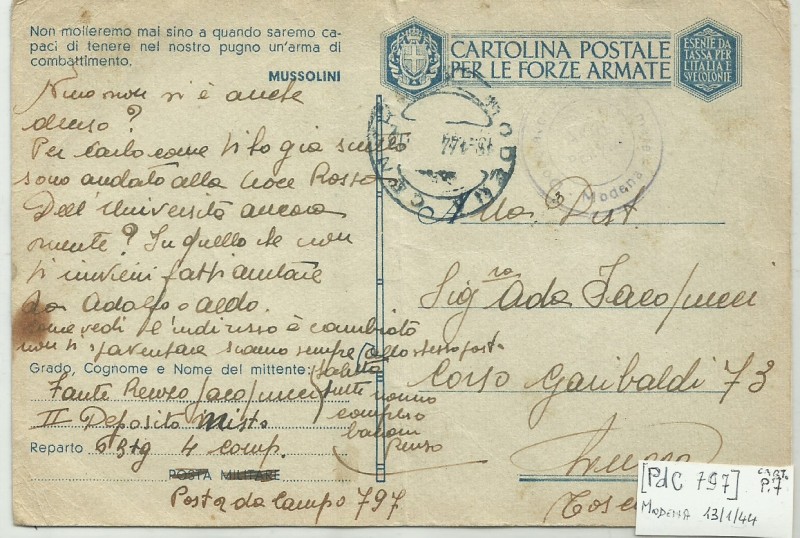 Non molleremo mai sino a quando saremo ca-
paci di tenere nel nostro pugno un'arma di
combattimento.
MUSSOLINI
CARTOLINA POSTALE
PER LE FORZE ARMATE
ESENTE DA
TASSA PER
L'ITALIA E
SUE COLONIE
MODENA
Modena
Nino non vi è anche
deciso?
Per Carlo come ti fo già
sono andato alla Croce Rossa
Dell'Università ancora
niente? In quello che non
ti fatti aiutare
da Adolfo o Aldo.
Come vedi l'indirizzo è cambiato
non ti spaventare siamo sempre allo stesso posto
Saluta
tutti nonno
compreso
bacioni
Renzo
Grado, Cognome e Nome del mittente:
Fante Renzo Jacopucci
II Deposito Misto
Reparto 4 Comp.
POSTA MILITARE
Posta da Campo 797
Alla
Sig.ra Ada Jacopucci
Corso Garibaldi 73
Lucca
[PdC 797] P.7
MODENA 13/1/44